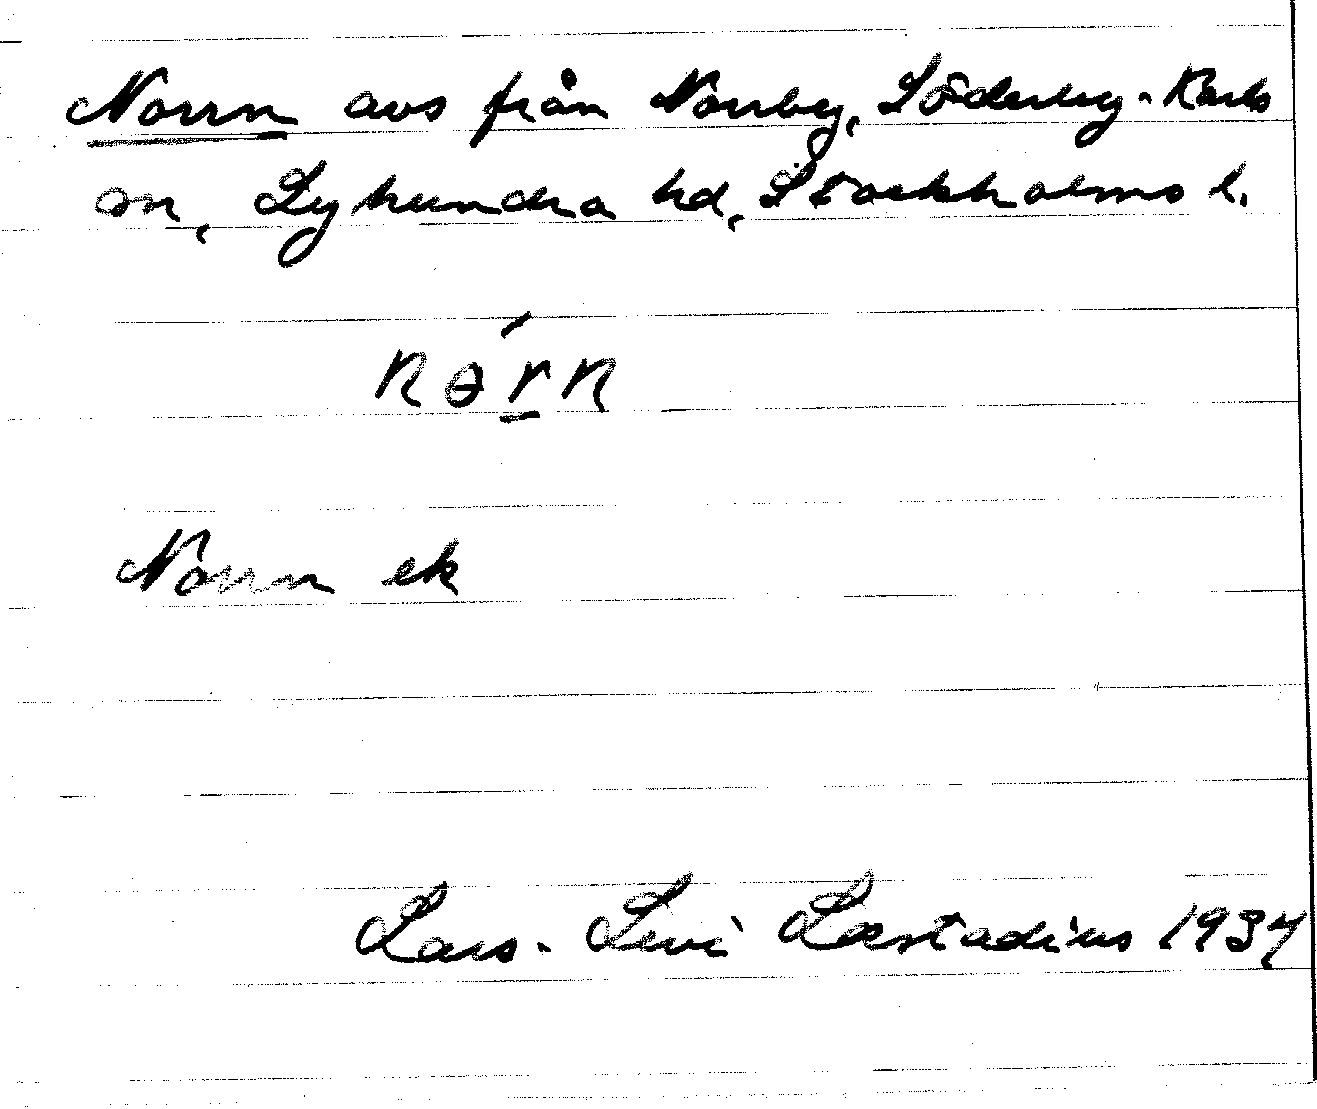 Norrn avs från Norrby, Söderby-Karls
sn, Lyhundra hd, Stockholms l.
nɵṟ́n
Norrn ek
Lars-Levi Læstadius 1934